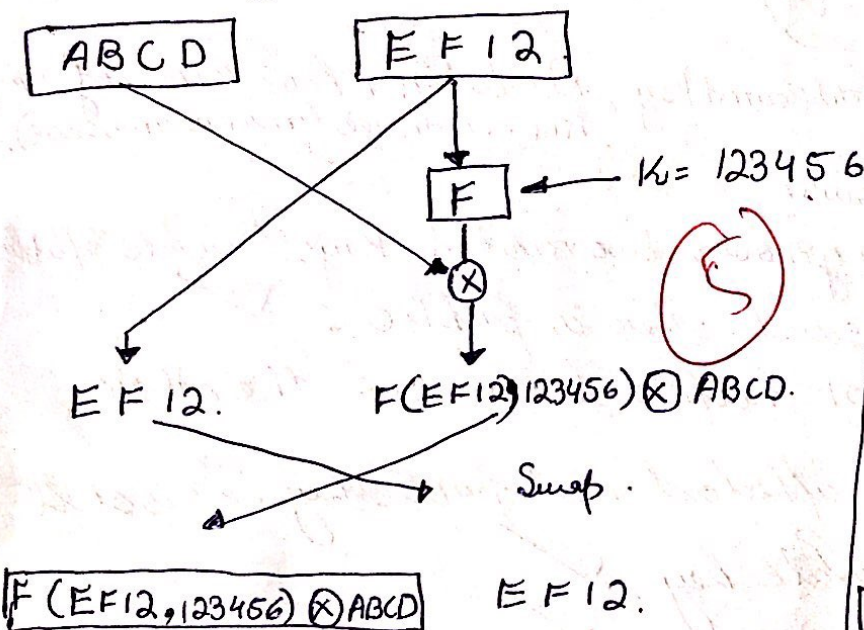 ABCD EF12
F K = 123456
ⓧ
5
EF12. F(EF12,123456) ⓧ ABCD.
Swap.
F(EF12,123456) ⓧ ABCD EF12.